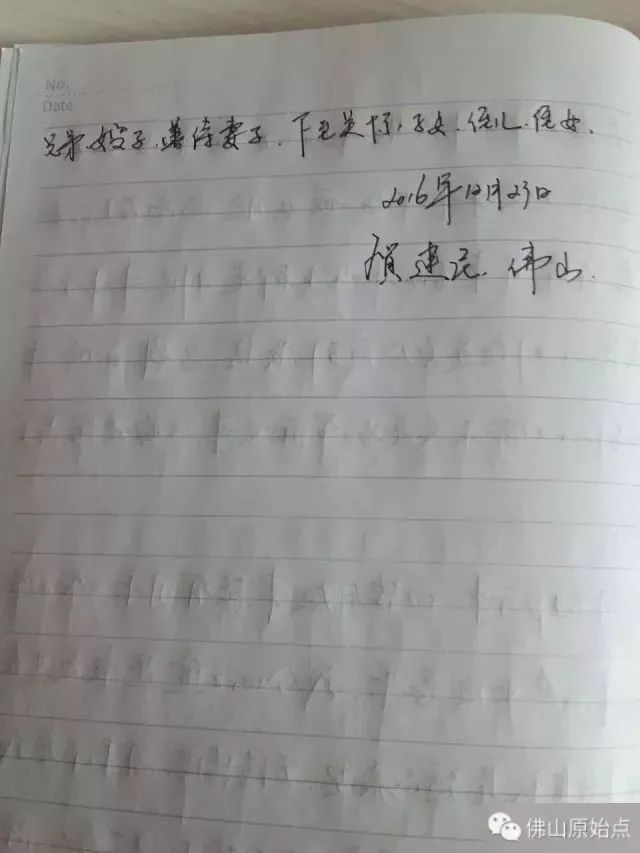 No.
Date
兄弟、嫂子、善待妻子、下包关怀,子女、侄儿、侄女.
2016年12月23日
建民、佛山.
佛山原始点